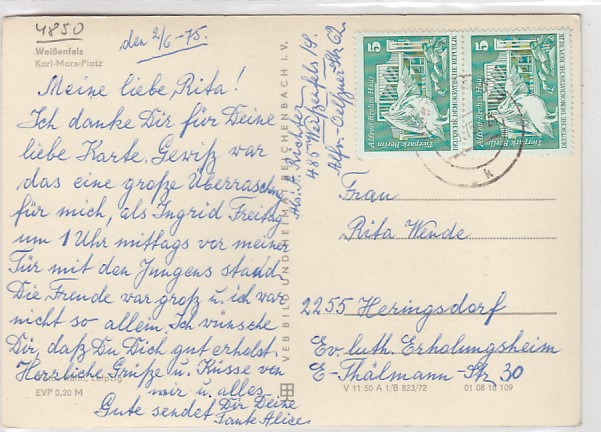 4850
Weißenfels
Karl-Marx-Platz
den 2/6-75.
Meine liebe Rita!
Ich danke Dir für Deine
liebe Karte. Gewiß war
das eine große Überraschg
für mich, als Ingrid Freitag
um 1 Uhr mittags vor meiner
Tür mit den Jungens stand.
Die Freude war groß u. ich war
nicht so allein. Ich wünsche
Dir, daß Du Dich gut erholst.
Herrliche Grüße u. Küsse von
mir u. alles
Gute sendet Dir Deine
Tante Alice
Leipzig
EVP 0,20 M
VEB BILD UND HEIMAT REICHENBACH I. V.
Abs. A. Richter
485 Weißenfels/S.
Str 62
5
Alfred-Brehm-Haus
Tierpark Berlin
DEUTSCHE DEMOKRATISCHE REPUBLIK
5
Alfred-Brehm-Haus
Tierpark Berlin
DEUTSCHE DEMOKRATISCHE REPUBLIK
k
Frau
Rita Wende
2255 Heringsdorf
Ev. luth. Erholungsheim
E-Thälmann-Str 30
V 11 50 A 1/B 823/72 01 08 18 109